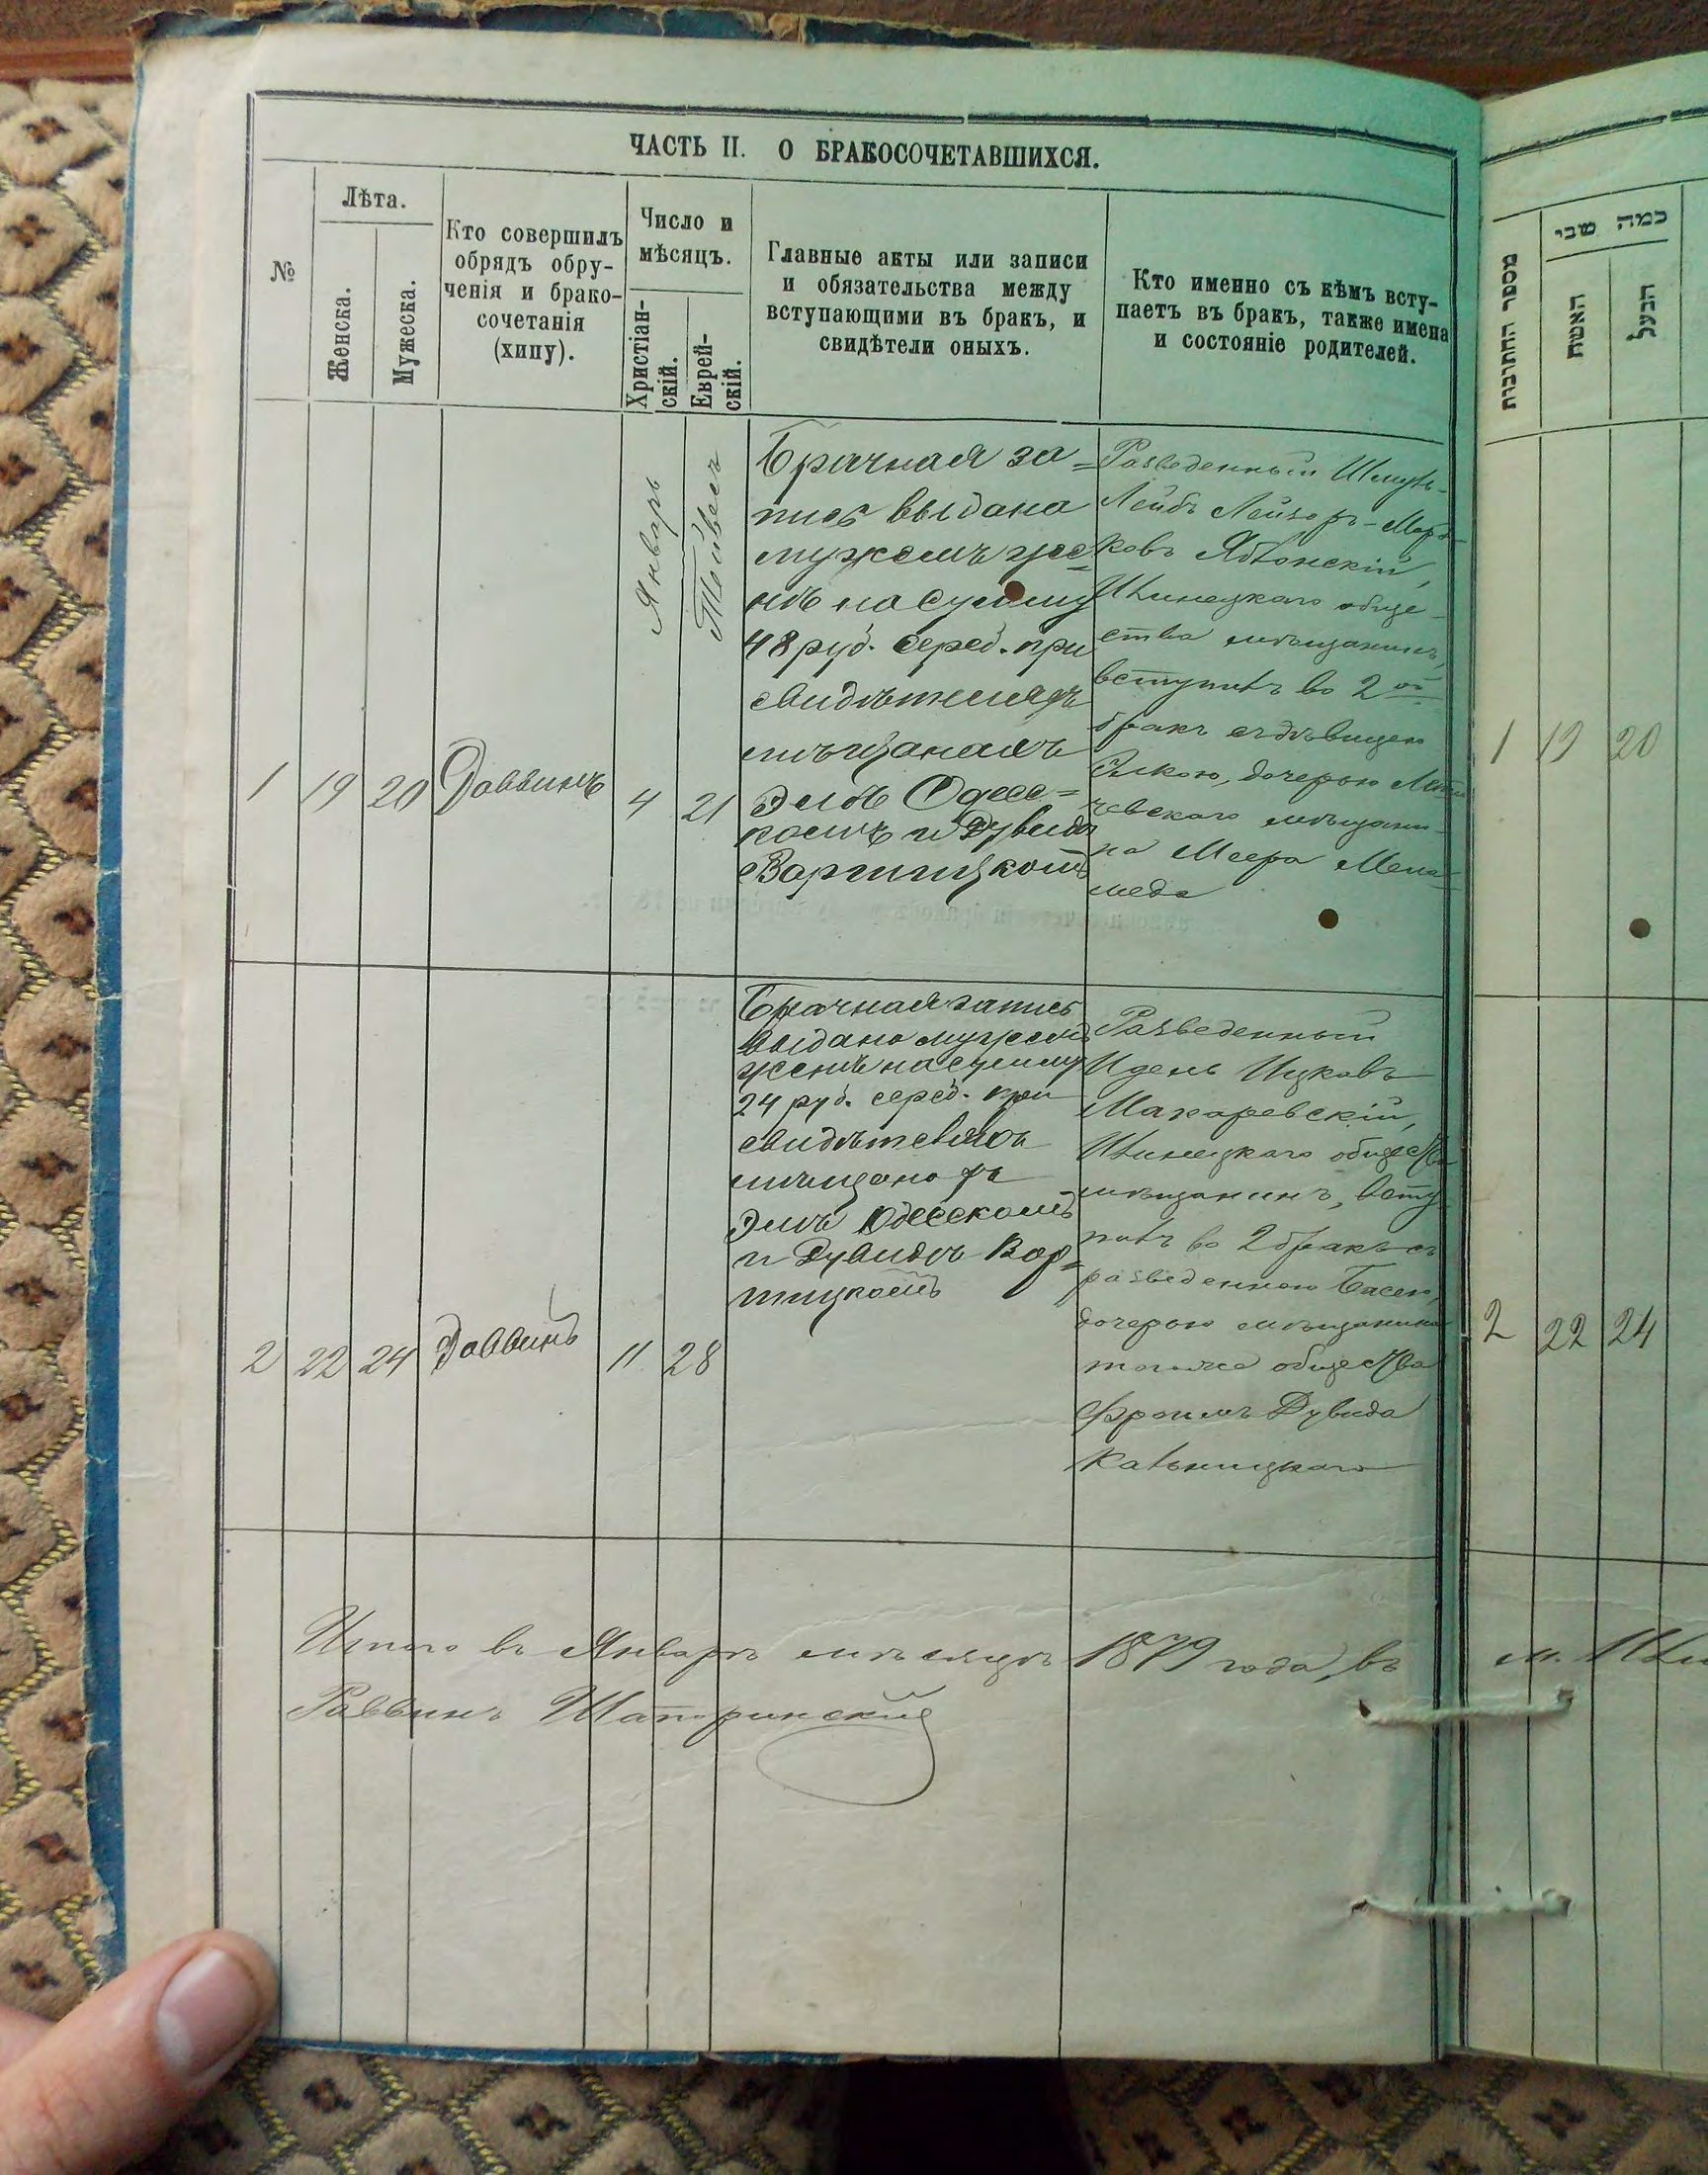 ЧАСТЬ II. О БРАКОСОЧЕТАВШИХСЯ.
№
Лѣта.
Женска.
Мужеска.
Кто совершилъ
обрядъ обру-
ченія и брако-
сочетанія
(хипу).
Число и
мѣсяцъ.
Христіан-
скій.
Еврей-
скій.
Главные акты или записи
и обязательства между
вступающими въ бракъ, и
свидѣтели оныхъ.
Кто именно съ кѣмъ всту-
паетъ въ бракъ, также имена
и состояніе родителей.
Январь
Тейвесъ
1 19 20 Раввинъ 4 21
Брачная за=
пись выдана
мужемъ же=
нѣ на сумму
48 руб. сереб. при
свидѣтеляхъ
мѣщанахъ
Элѣ Одесс=
комъ и Дувидѣ
Вортницкомъ
Разведенный Шмуль-
Лейбъ Лейзоръ-Морд-
ковъ Яблонскій,
Шпинецкаго обще-
ства мѣщанинъ,
вступилъ во 2ой
бракъ съ дѣвицею
дочерью
мѣщани-
на Меера Мела-
меда
2 22 24 Раввинъ 11 28
Брачная запись
выдана мужемъ
женѣ на сумму
24 руб. сереб. при
свидѣтеляхъ
мѣщанахъ
Элѣ Одесскомъ
и Дувидѣ Вор=
тницкомъ
Разведенный
Идель Ицковъ
Макаревскій,
общества
мѣщанинъ, всту-
пилъ во 2 бракъ съ
разведенною Басею,
дочерью мѣщанина
тогоже общества
Фроимъ Дувида
Кальницкаго
Итого въ Январѣ мѣсяцѣ 1879 года, въ
Раввинъ
מספר החתונות
כמה שני
האשה
הבעל
1 19 20
2 22 24
м.